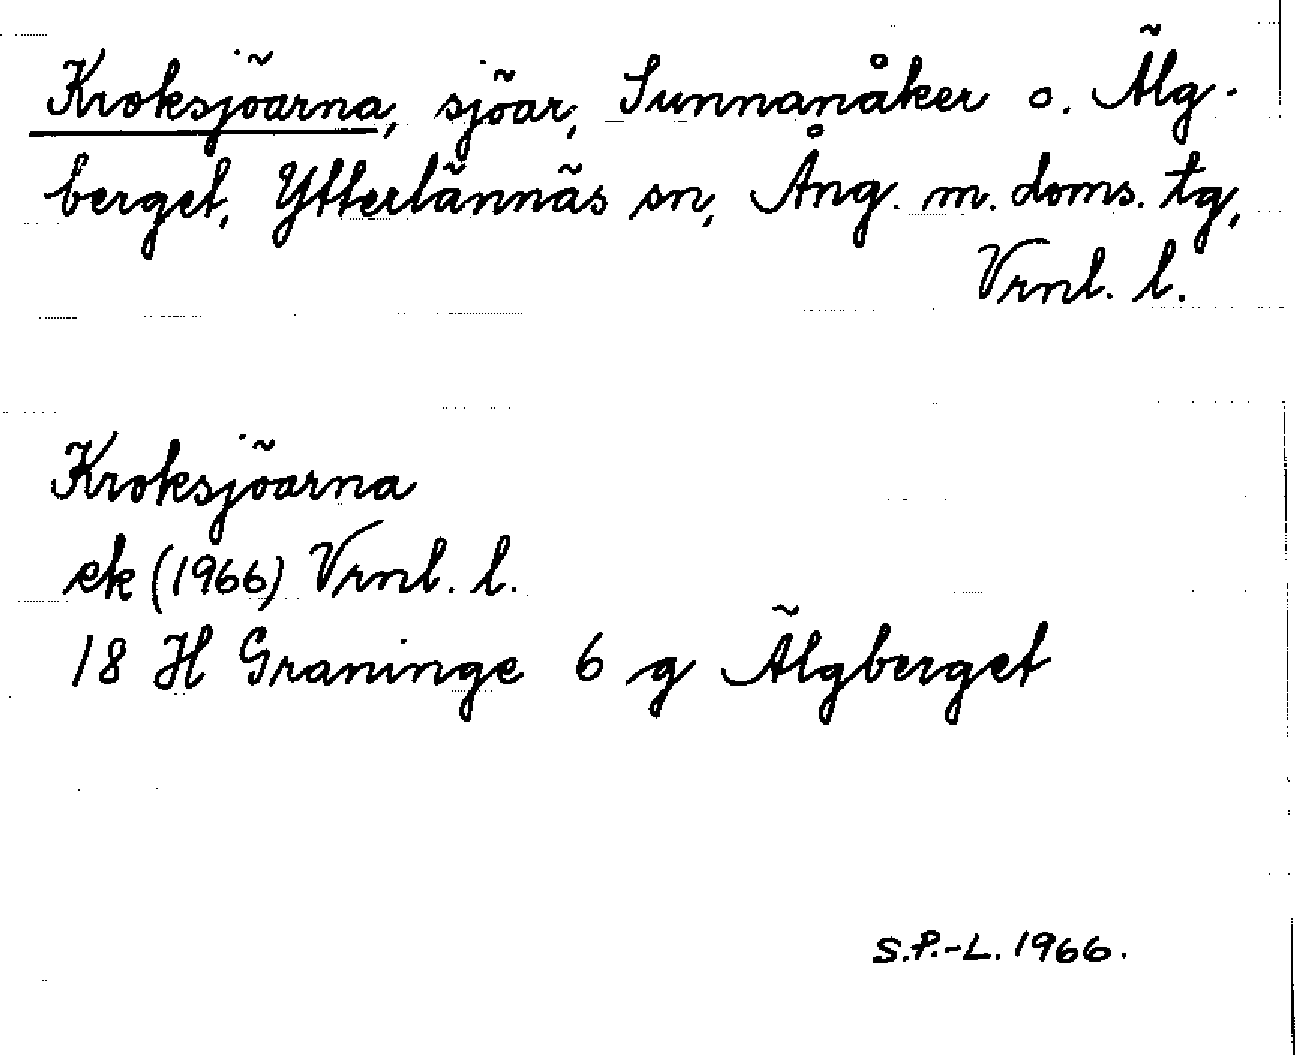 Kroksjöarna, sjöar, Sunnanåker o. Älg-
berget, Ytterlännäs sn, Ång. m. doms. tg,
Vrnl. l.
Kroksjöarna
ek (1966) Vrnl. l.
18 H Graninge 6 g Älgberget
S.P.-L. 1966.